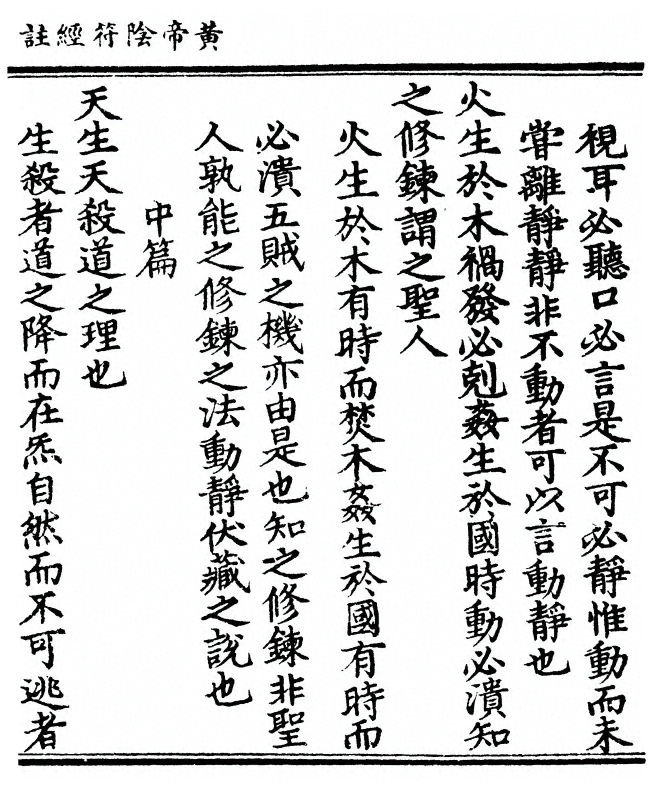 黃帝陰符經註
視耳必聽口必言是不可必靜惟動而未
甞離靜靜非不動者可以言動靜也
火生於木禍發必剋姦生於國時動必潰知
之修鍊謂之聖人
火生於木有時而焚木姦生於國有時而
必潰五賊之機亦由是也知之修鍊非聖
人孰能之修鍊之法動靜伏藏之說也
中篇
天生天殺道之理也
生殺者道之降而在炁自然而不可逃者